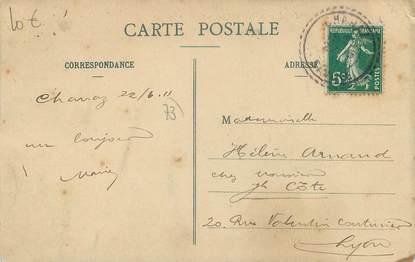 CARTE POSTALE
CORRESPONDANCE
ADRESSE
REPUBLIQUE FRANÇAISE
5c
POSTES
Chanaz 22/6.11
73
un bonjour
Marie
Mademoiselle
Hélène Arnaud
chez monsieur
Jh Côte
20. Rue Valentin Couturier
Lyon